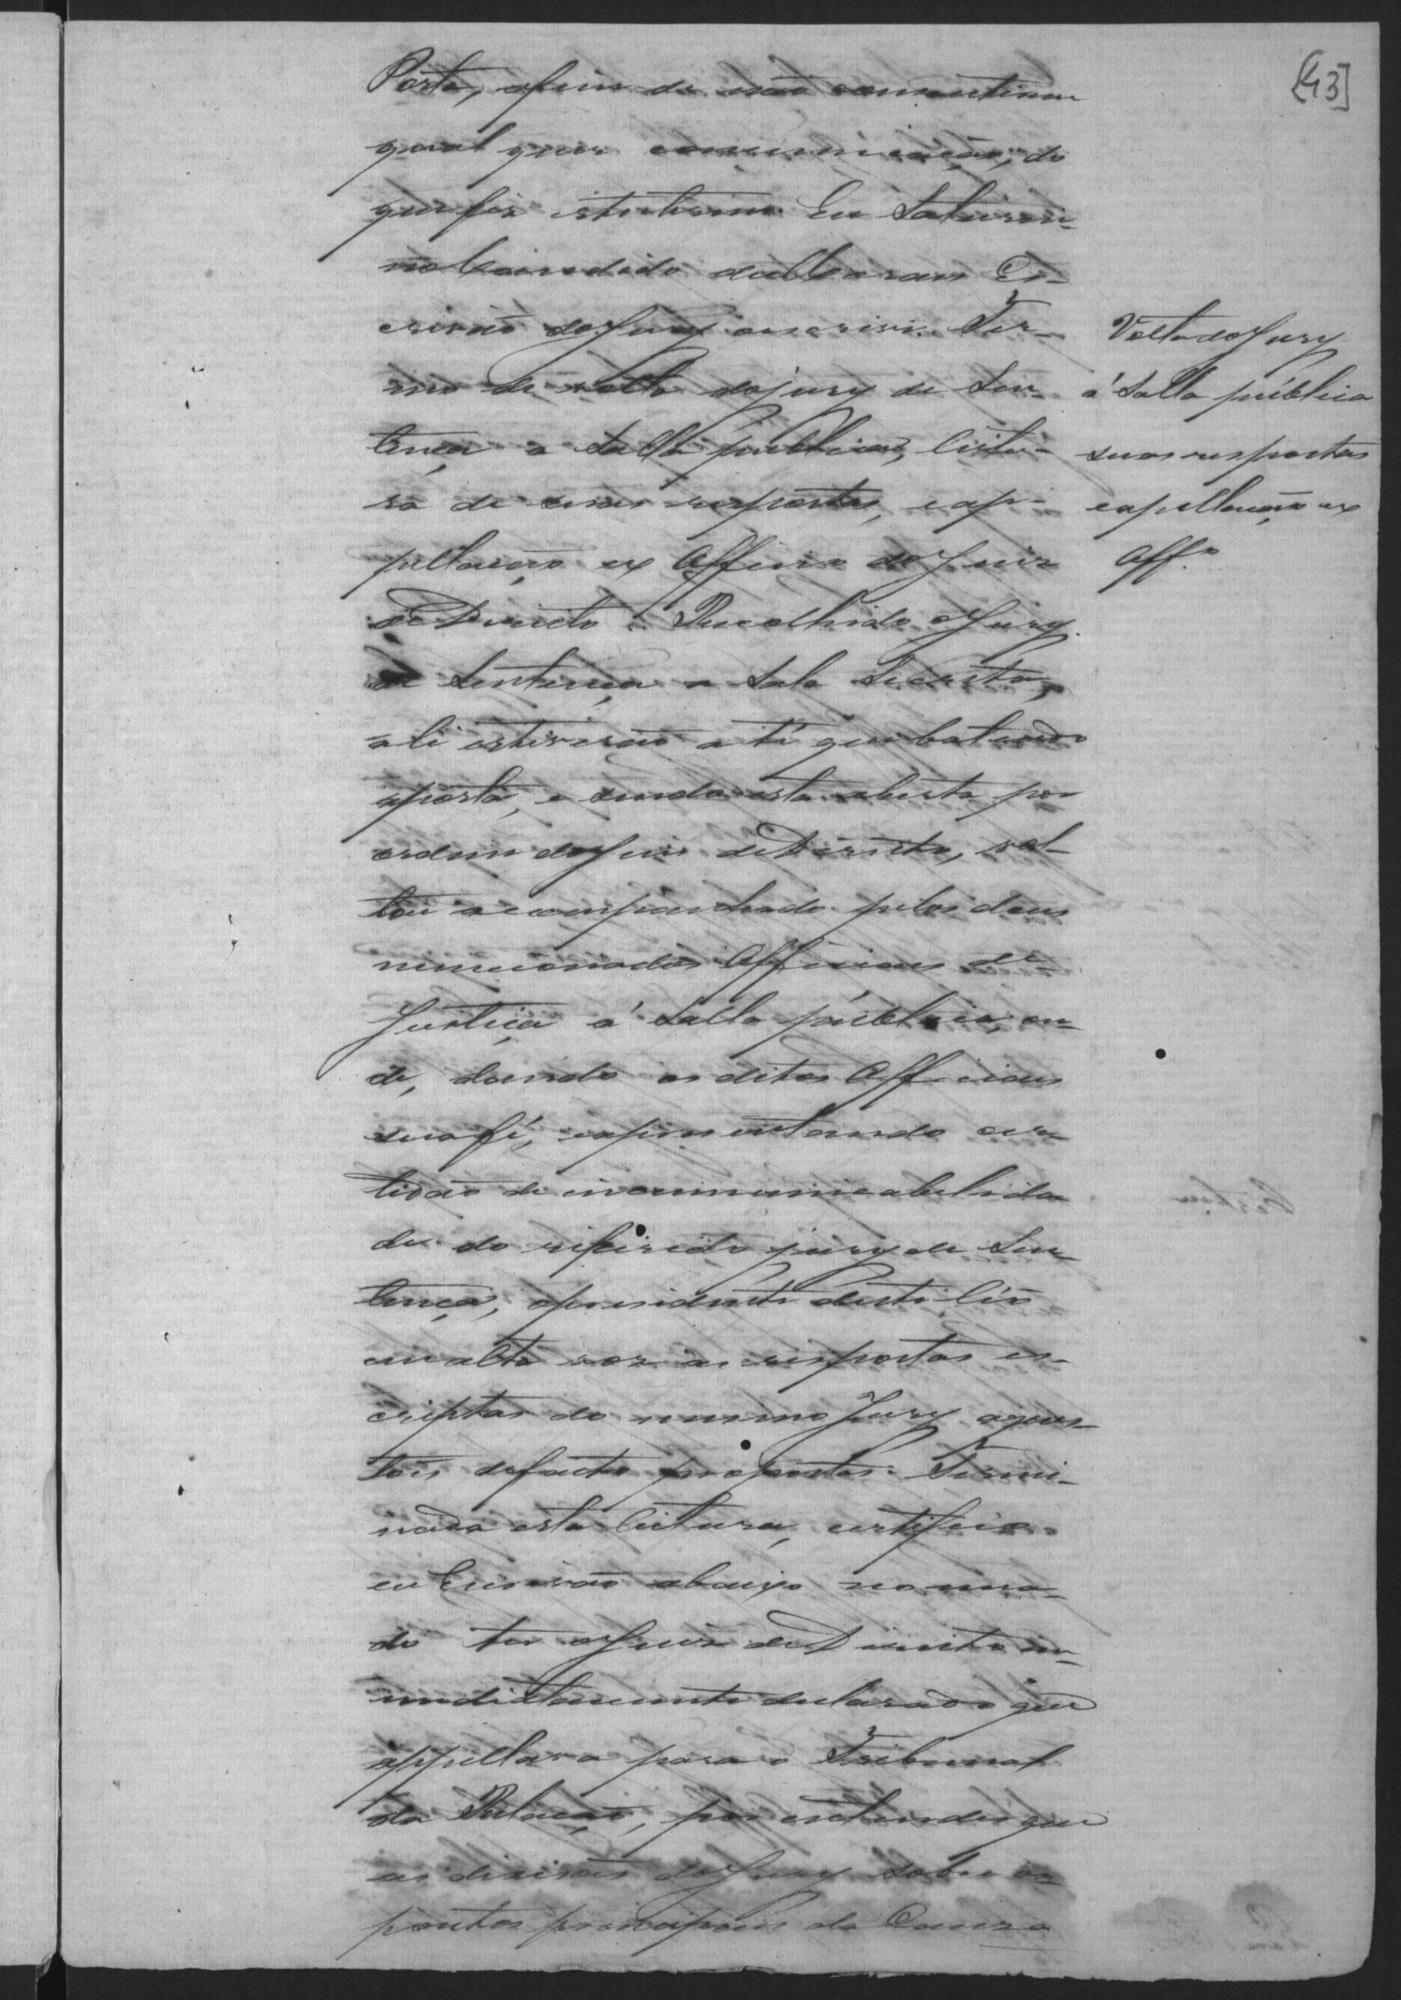 [43]
Porta, afim de não consentirem
qual quer comunicação; do
que fiz este termo Eu Saturni-
no Candido Es-
crivão do Jury escrivi. Ter-
mo de volta do jury de Sen-
tença a Salla publica, leitu-
ra de suas respostas, e ap-
pellação ex Officio do Juiz
de Direito. Recolhido o Jury
de Sentença a Sala Secreta,
ali estiverão até que batendo
a porta, e sendo esta aberta por
ordem do Juiz de Direito, vol-
tou acompanhado pelos dous
mencionados Officiaes de
Justiça á Salla pública, on-
de, dando os ditos Officiaes
sua fé, apresentando cer-
tidão de incommunicabilida
de do referido jury de Sen-
tença, o presidente deste leo
em alta voz as respostas es-
criptas do mesmo Jury aques-
tões de facto propostas. Termi-
nada esta leitura, certifico
eu Escrivão abaixo nomea-
do ter o Juiz de Direito im-
mediatamente declarado que
appellava para o Tribunal
da Relação, por entender que
as decisões do Jury sobre os
pontos principais da Causa
Volta do Jury
á Salla pública
suas respostas
e apellação ex
Off.º